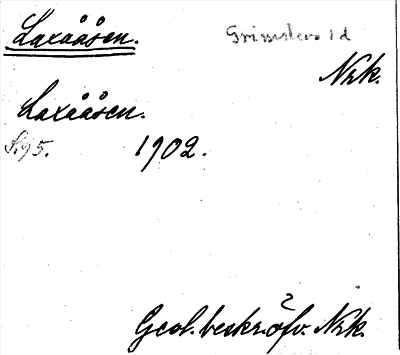 Laxååsen.
Grimsten sd
Nrk.
Laxååsen.
S. 95. 1902.
Geol. beskr. öfv. Nrk.